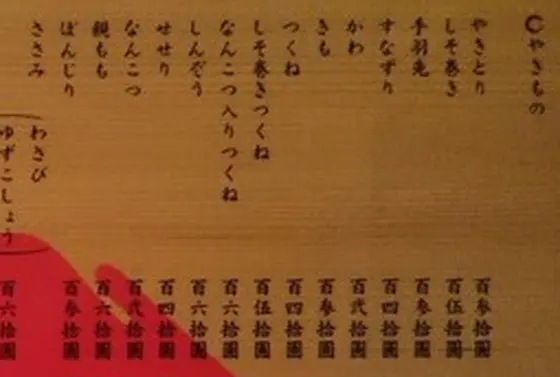 〇やきもの
やきとり 百参拾圓
しそ巻き 百伍拾圓
手羽先 百参拾圓
すなずり 百四拾圓
かわ 百弐拾圓
きも 百参拾圓
つくね 百四拾圓
しそ巻きつくね 百伍拾圓
なんこつ入りつくね 百六拾圓
しんぞう 百六拾圓
せせり 百四拾圓
なんこつ 百弐拾圓
親もも 百六拾圓
ぼんじり 百参拾圓
ささみ わさび
ゆずこしょう 百六拾圓